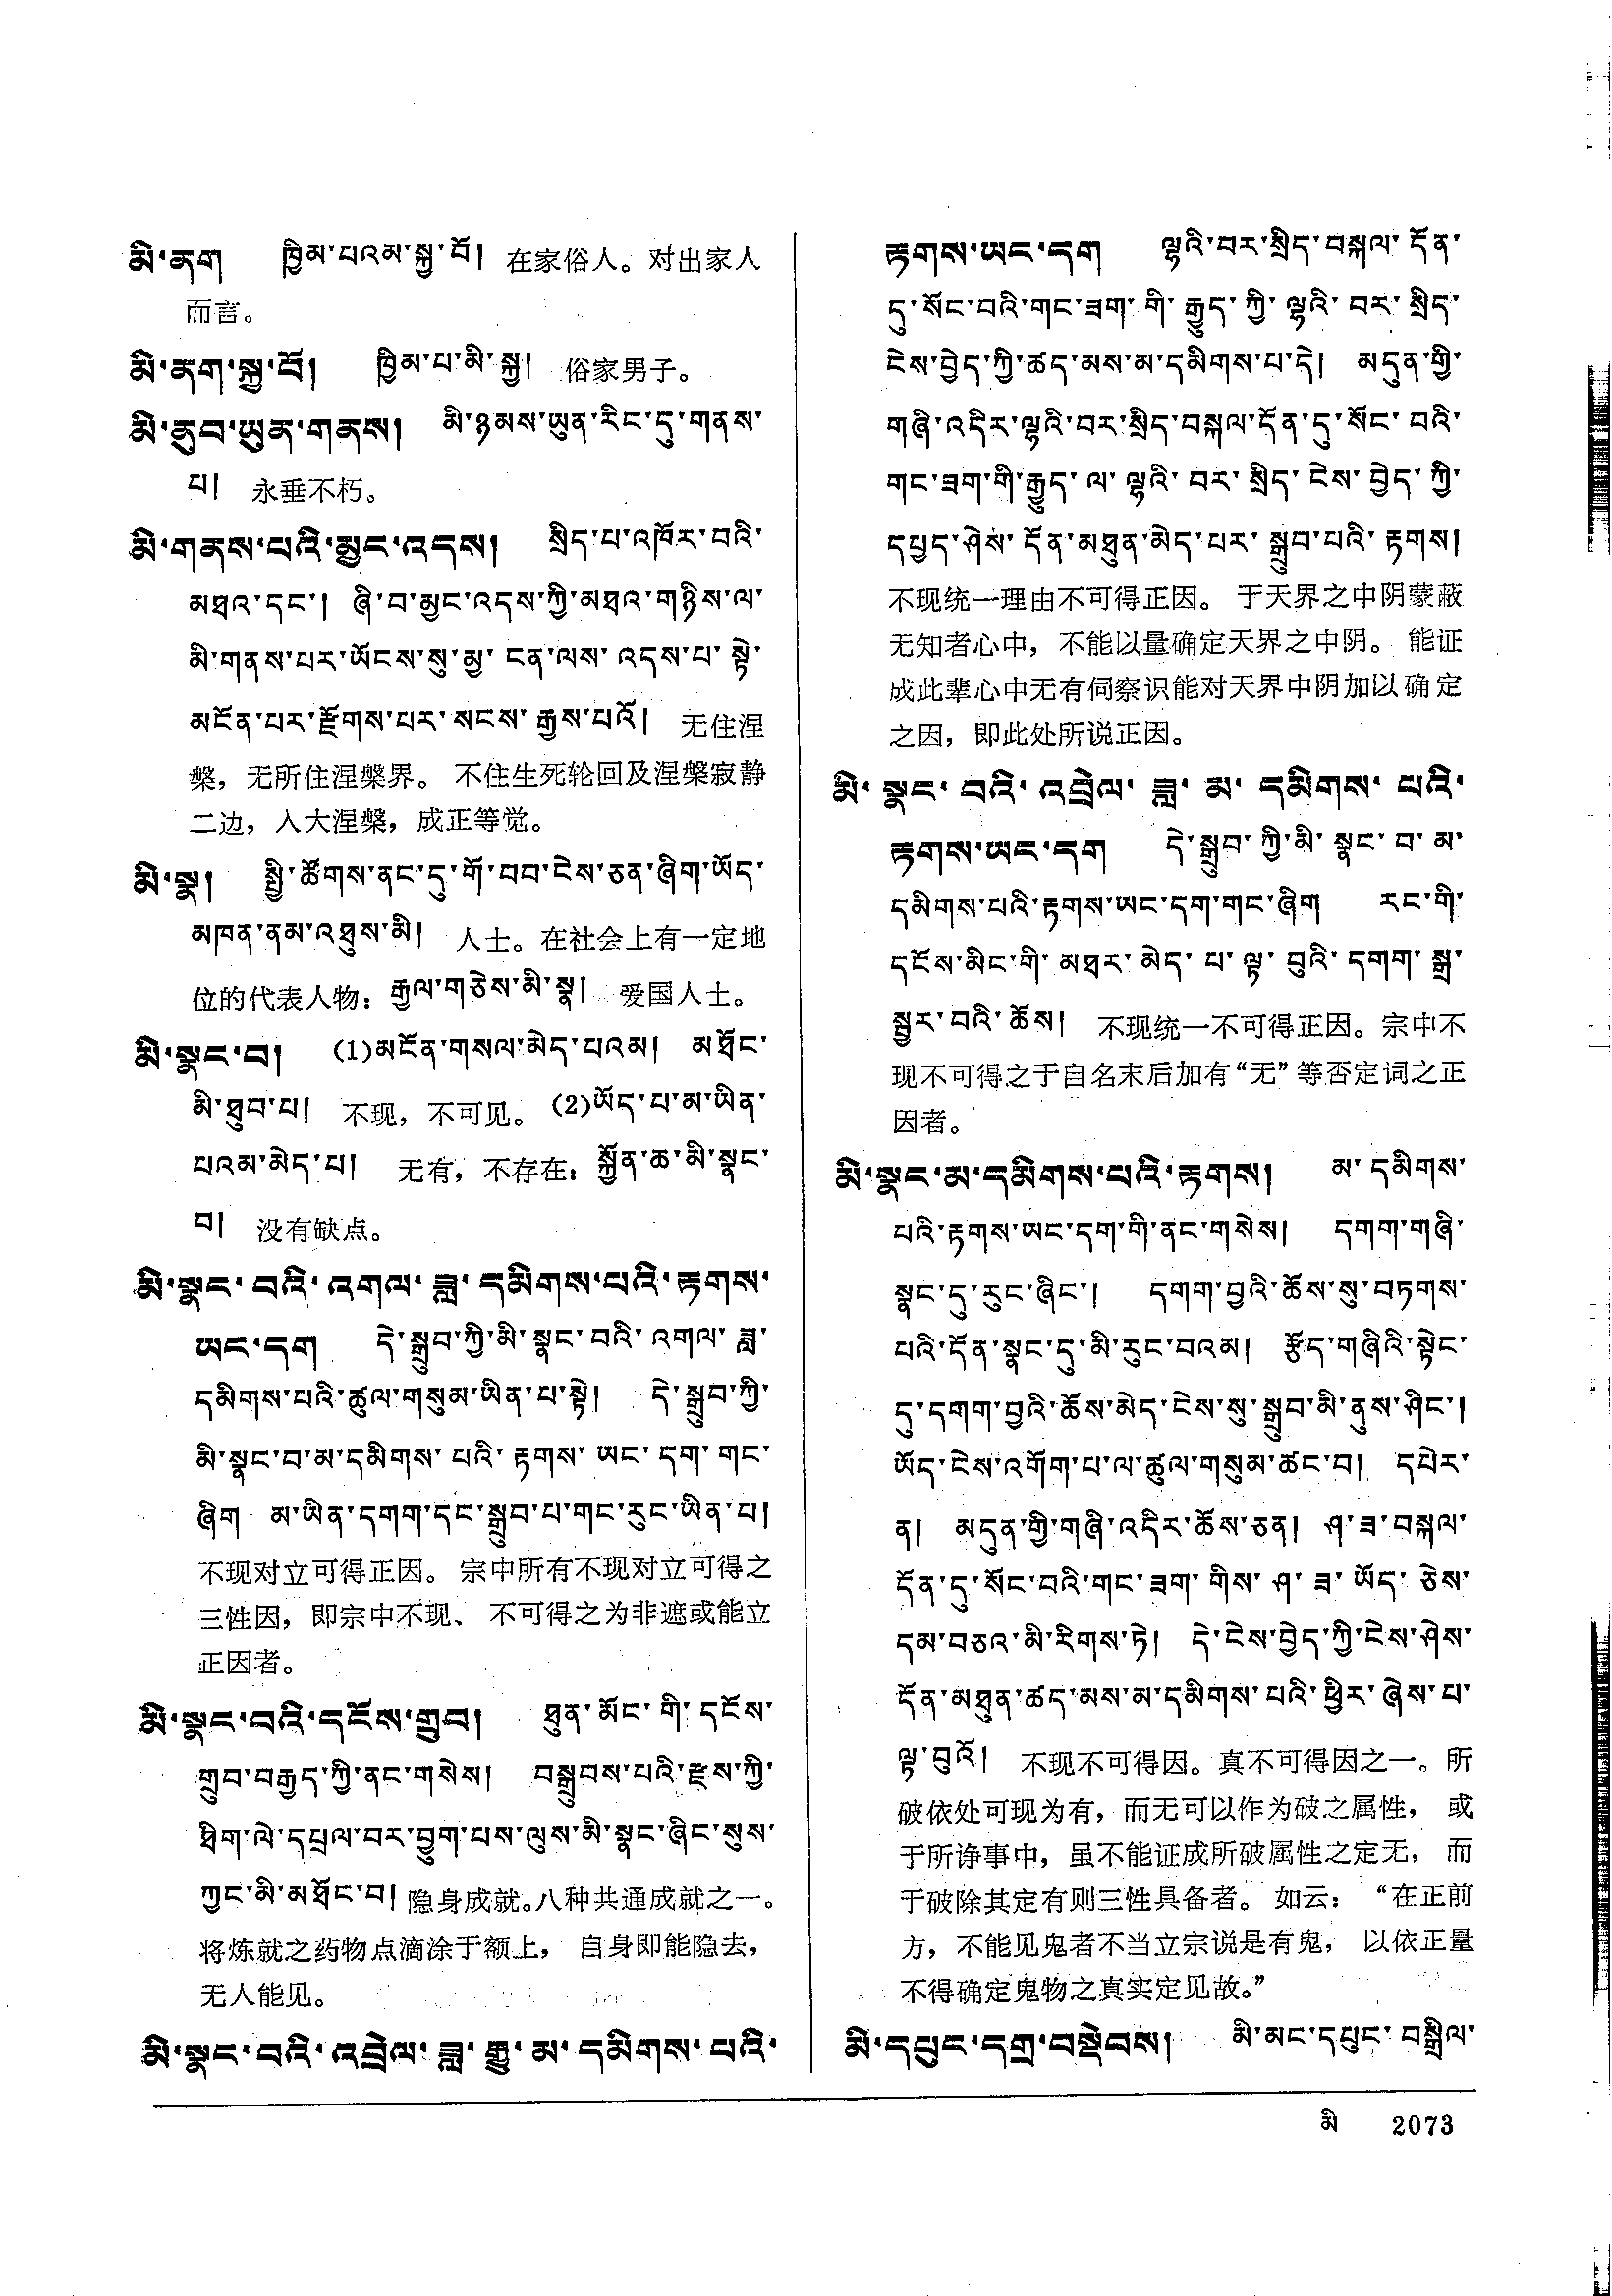 མི་ནག ཁྱིམ་པའམ་སྐྱ་བོ། 在家俗人。对出家人
而言。
མི་ནག་སྐྱ་བོ། ཁྱིམ་པ་མི་སྐྱ། 俗家男子。
མི་ནུབ་ཡུན་གནས། མི་ཉམས་ཡུན་རིང་དུ་གནས་
པ། 永垂不朽。
མི་གནས་པའི་མྱང་འདས། སྲིད་པ་འཁོར་བའི་
མཐའ་དང་། ཞི་བ་མྱང་འདས་ཀྱི་མཐའ་གཉིས་ལ་
མི་གནས་པར་ཡོངས་སུ་མྱ་ངན་ལས་འདས་པ་སྟེ་
མངོན་པར་རྫོགས་པར་སངས་རྒྱས་པའོ། 无住涅
槃，无所住涅槃界。不住生死轮回及涅槃寂静
二边，入大涅槃，成正等觉。
མི་སྣ། སྤྱི་ཚོགས་ནང་དུ་གོ་བབ་ངེས་ཅན་ཞིག་ཡོད་
མཁན་ནམ་འཐུས་མི། 人士。在社会上有一定地
位的代表人物：རྒྱལ་གཅེས་མི་སྣ། 爱国人士。
མི་སྣང་བ། (1)མངོན་གསལ་མེད་པའམ། མཐོང་
མི་ཐུབ་པ། 不现，不可见。(2)ཡོད་པ་མ་ཡིན་
པའམ་མེད་པ། 无有，不存在：སྐྱོན་ཆ་མི་སྣང་
བ། 没有缺点。
མི་སྣང་བའི་འགལ་ཟླ་དམིགས་པའི་རྟགས་
ཡང་དག དེ་སྒྲུབ་ཀྱི་མི་སྣང་བའི་འགལ་ཟླ་
དམིགས་པའི་ཚུལ་གསུམ་ཡིན་པ་སྟེ། དེ་སྒྲུབ་ཀྱི་
མི་སྣང་བ་མ་དམིགས་པའི་རྟགས་ཡང་དག་གང་
ཞིག མ་ཡིན་དགག་དང་སྒྲུབ་པ་གང་རུང་ཡིན་པ།
不现对立可得正因。宗中所有不现对立可得之
三性因，即宗中不现、不可得之为非遮或能立
正因者。
མི་སྣང་བའི་དངོས་གྲུབ། ཐུན་མོང་གི་དངོས་
གྲུབ་བརྒྱད་ཀྱི་ནང་གསེས། བསྒྲུབས་པའི་རྫས་ཀྱི་
ཐིག་ལེ་དཔྲལ་བར་བྱུག་པས་ལུས་མི་སྣང་ཞིང་སུས་
ཀྱང་མི་མཐོང་བ། 隐身成就。八种共通成就之一。
将炼就之药物点滴涂于额上，自身即能隐去，
无人能见。
མི་སྣང་བའི་འབྲེལ་ཟླ་རྒྱུ་མ་དམིགས་པའི་
རྟགས་ཡང་དག ལྷའི་བར་སྲིད་བསྐལ་དོན་
དུ་སོང་བའི་གང་ཟག་གི་རྒྱུད་ཀྱི་ལྷའི་བར་སྲིད་
ངེས་བྱེད་ཀྱི་ཚད་མས་མ་དམིགས་པ་དེ། མདུན་གྱི་
གཞི་འདིར་ལྷའི་བར་སྲིད་བསྐལ་དོན་དུ་སོང་བའི་
གང་ཟག་གི་རྒྱུད་ལ་ལྷའི་བར་སྲིད་ངེས་བྱེད་ཀྱི་
དཔྱད་ཤེས་དོན་མཐུན་མེད་པར་སྒྲུབ་པའི་རྟགས།
不现统一理由不可得正因。于天界之中阴蒙蔽
无知者心中，不能以量确定天界之中阴。能证
成此辈心中无有伺察识能对天界中阴加以确定
之因，即此处所说正因。
མི་སྣང་བའི་འབྲེལ་ཟླ་མ་དམིགས་པའི་
རྟགས་ཡང་དག དེ་སྒྲུབ་ཀྱི་མི་སྣང་བ་མ་
དམིགས་པའི་རྟགས་ཡང་དག་གང་ཞིག རང་གི་
དངོས་མིང་གི་མཐར་མེད་པ་ལྟ་བུའི་དགག་སྒྲ་
སྦྱར་བའི་ཆོས། 不现统一不可得正因。宗中不
现不可得之于自名末后加有“无”等否定词之正
因者。
མི་སྣང་མ་དམིགས་པའི་རྟགས། མ་དམིགས་
པའི་རྟགས་ཡང་དག་གི་ནང་གསེས། དགག་གཞི་
སྣང་དུ་རུང་ཞིང་། དགག་བྱའི་ཆོས་སུ་བཏགས་
པའི་དོན་སྣང་དུ་མི་རུང་བའམ། རྩོད་གཞིའི་སྟེང་
དུ་དགག་བྱའི་ཆོས་མེད་ངེས་སུ་སྒྲུབ་མི་ནུས་ཤིང་།
ཡོད་ངེས་འགོག་པ་ལ་ཚུལ་གསུམ་ཚང་བ། དཔེར་
ན། མདུན་གྱི་གཞི་འདིར་ཆོས་ཅན། ཤ་ཟ་བསྐལ་
དོན་དུ་སོང་བའི་གང་ཟག་གིས་ཤ་ཟ་ཡོད་ཅེས་
དམ་བཅའ་མི་རིགས་ཏེ། དེ་ངེས་བྱེད་ཀྱི་ངེས་ཤེས་
དོན་མཐུན་ཚད་མས་མ་དམིགས་པའི་ཕྱིར་ཞེས་པ་
ལྟ་བུའོ། 不现不可得因。真不可得因之一。所
破依处可现为有，而无可以作为破之属性，或
于所诤事中，虽不能证成所破属性之定无，而
于破除其定有则三性具备者。如云：“在正前
方，不能见鬼者不当立宗说是有鬼，以依正量
不得确定鬼物之真实定见故。”
མི་དཔུང་དགྲ་བསྡེབས། མི་མང་དཔུང་བསྒྲིལ་
མི 2073